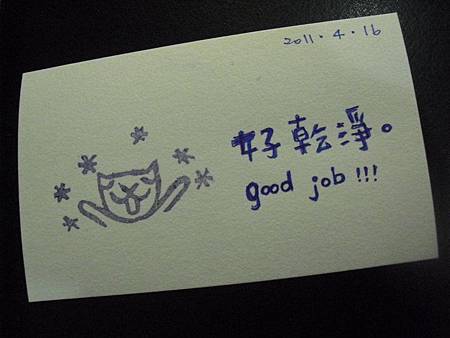 2011.4.16
好乾淨。
good job !!!